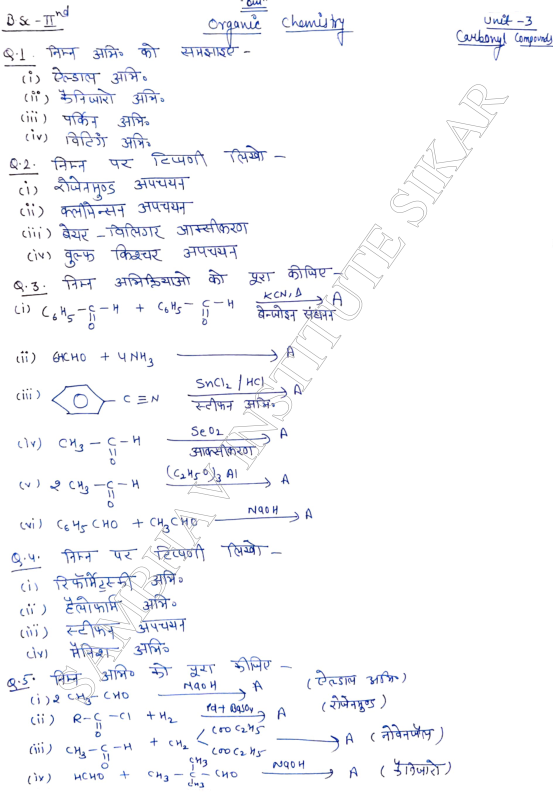 "Out"
B Sc - II nd
Organic Chemistry
Unit - 3
Carbonyl Compounds
Q.1. निम्न अभि० को समझाइए -
(i) ऐल्डाल अभि०
(ii) कैनिजारो अभि०
(iii) पर्किन अभि०
(iv) विटिंग अभि०
Q.2. निम्न पर टिप्पणी लिखो -
(i) रोजेनमुण्ड अपचयन
(ii) क्लीमेन्सन अपचयन
(iii) बेयर - विलिगर आक्सीकरण
(iv) वुल्फ किश्चर अपचयन
Q.3. निम्न अभिक्रियाओ को पूरा कीजिए -
(i) C6H5 - C - H + C6H5 - C - H KCN, Δ → A
O O बेन्जोइन संघनन
(ii) 6HCHO + 4NH3 → A
(iii) C ≡ N SnCl2 / HCl → A
स्टीफन अभि०
(iv) CH3 - C - H SeO2 → A
O आक्सीकरण
(v) 2 CH3 - C - H (C2H5O)3 Al → A
O
(vi) C6H5 CHO + CH3 CHO NaOH → A
Q.4. निम्न पर टिप्पणी लिखो -
(i) रिफॉर्मेट्स्की अभि०
(ii) हैलोफार्म अभि०
(iii) स्टीफन अपचयन
(iv) मैनिश अभि०
Q.5. निम्न अभि० को पूरा कीजिए -
(i) 2 CH3 - CHO NaOH → A (ऐल्डाल अभि०)
(ii) R - C - Cl + H2 Pd + BaSO4 → A (रोजेनमुण्ड)
O
(iii) CH3 - C - H + CH2 COOC2H5 COOC2H5 → A (नोवेनजील)
O
CH3
(iv) HCHO + CH3 - C - CHO NaOH → A (कैनिजारो)
CH3
SAMBHAV INSTITUTE SIKAR